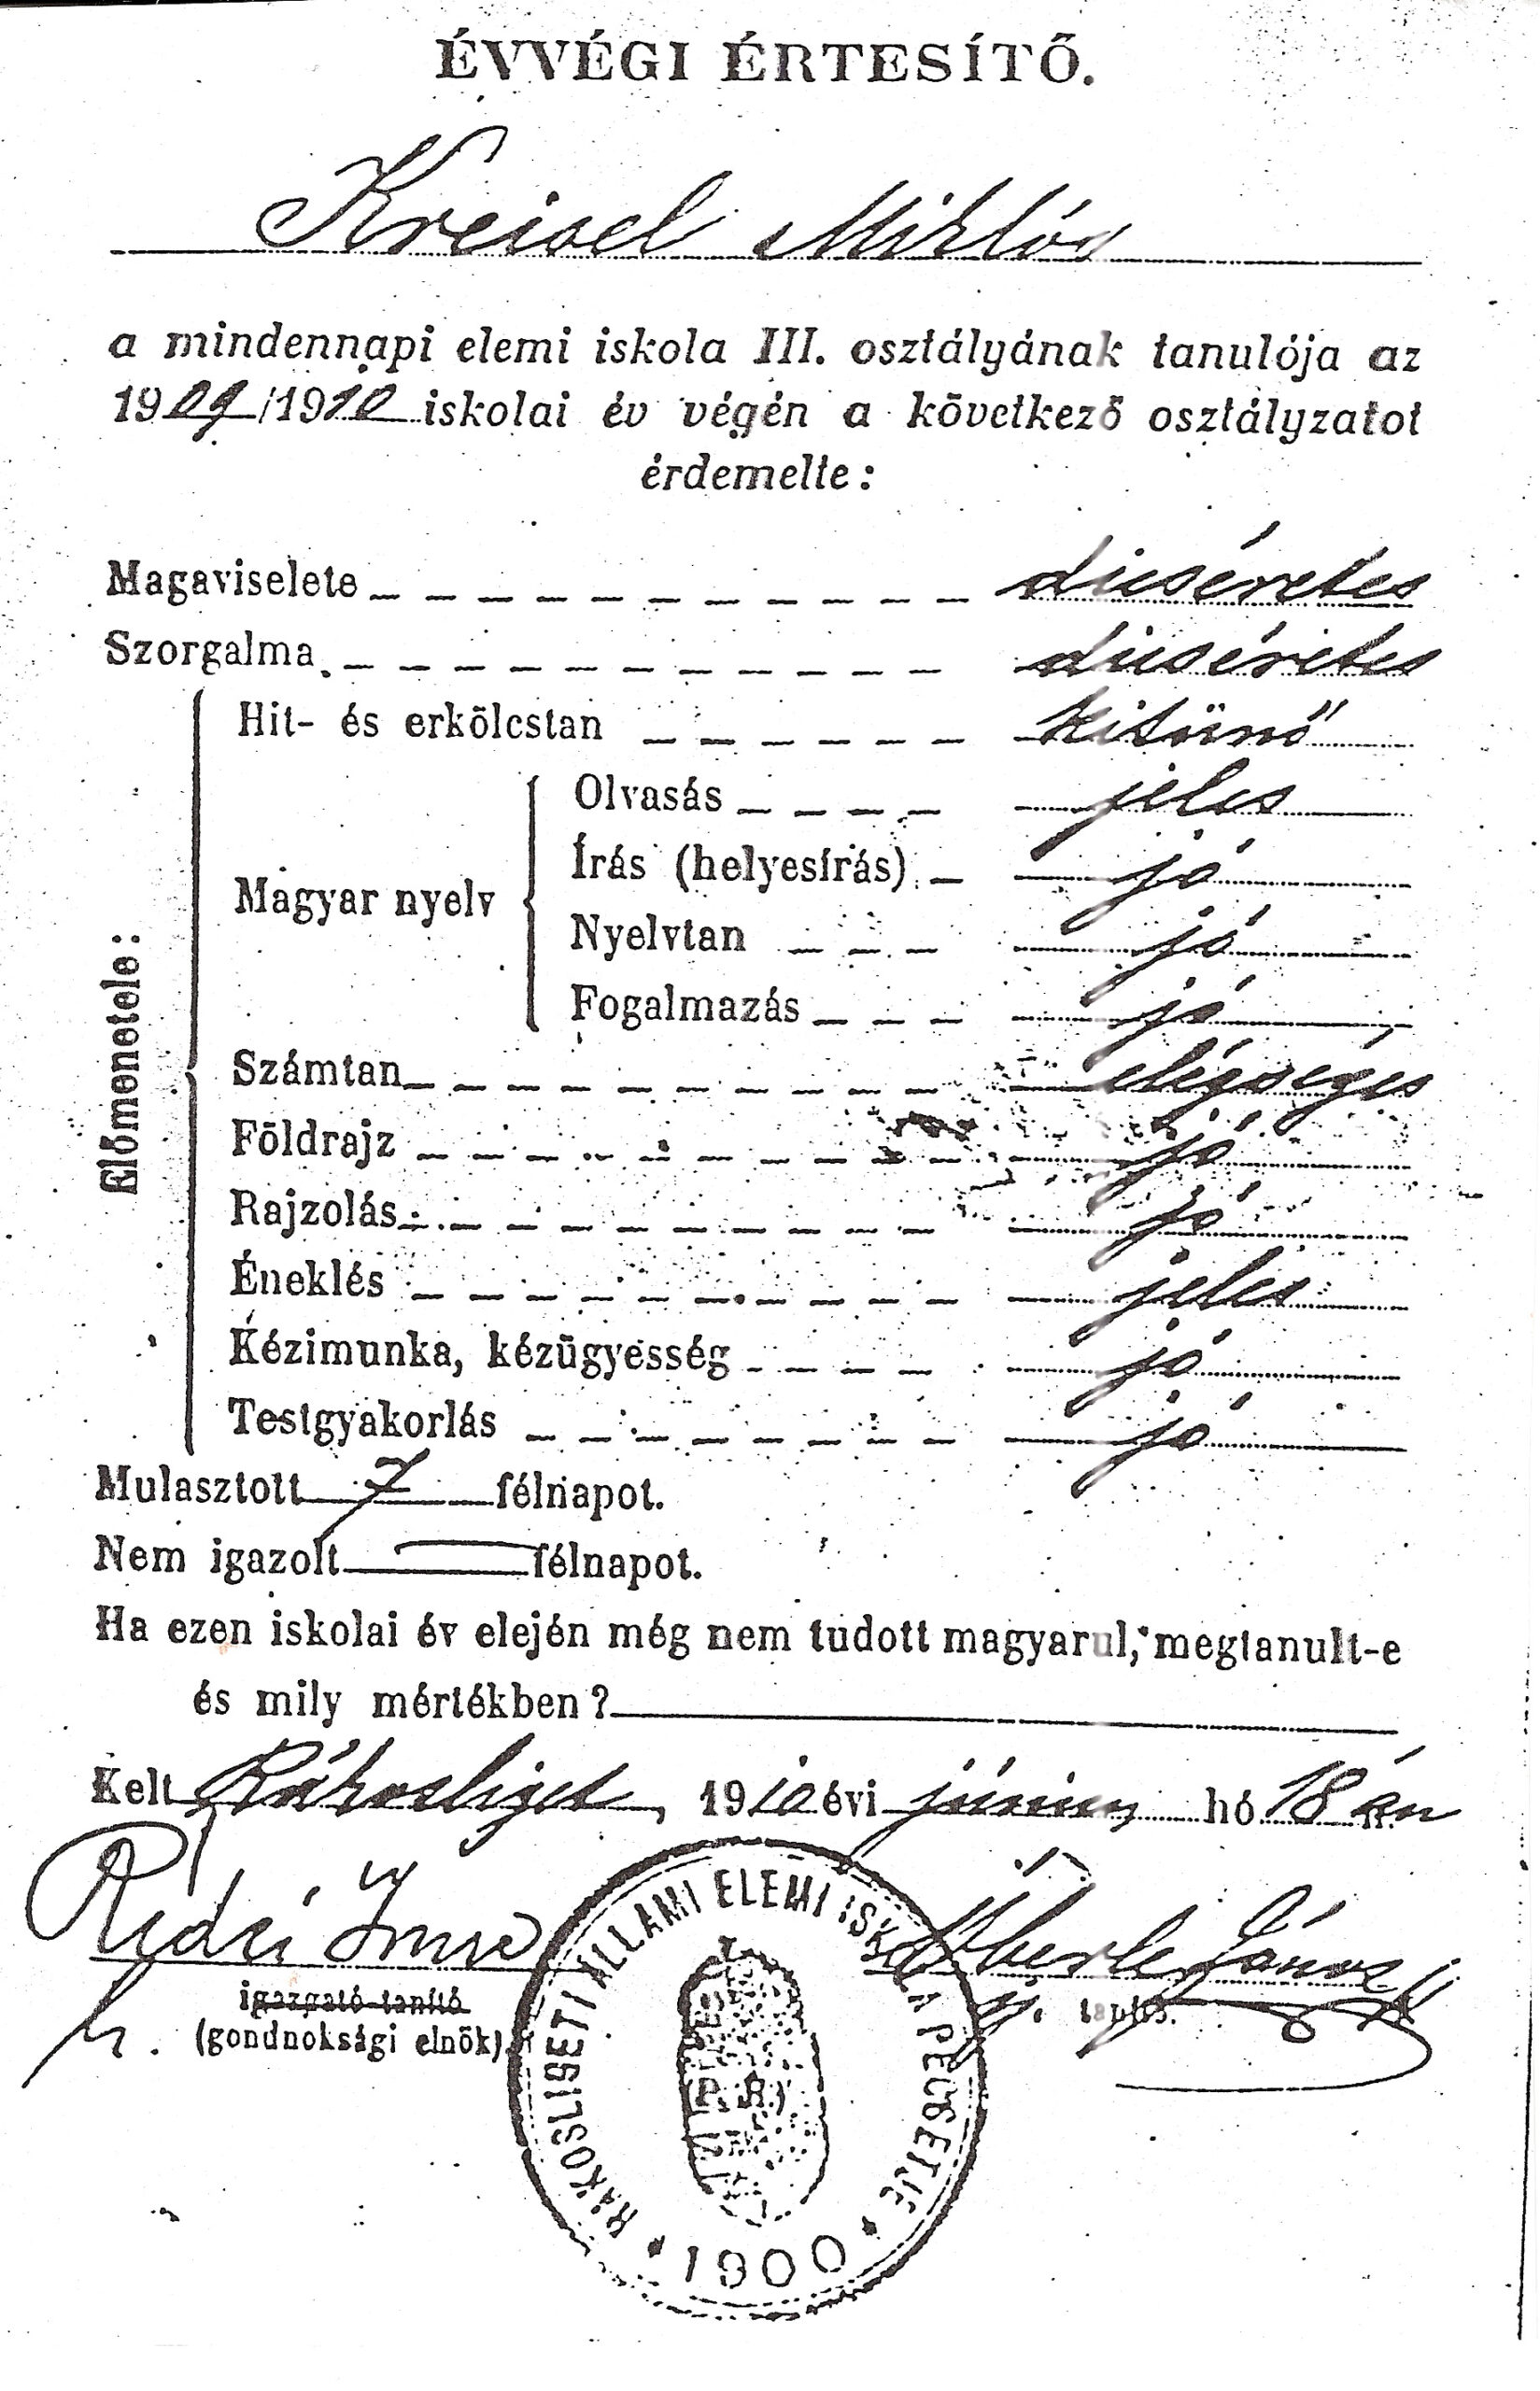 ÉVVÉGI ÉRTESÍTŐ.
Kreisel Miklós
a mindennapi elemi iskola III. osztályának tanulója az
1909/1910 iskolai év végén a következő osztályzatot
érdemelte:
Magaviselete dicséretes
Szorgalma dicséretes
Előmenetele:
Hit- és erkölcstan kitünő
Magyar nyelv
Olvasás jeles
Írás (helyesírás) jó
Nyelvtan jó
Fogalmazás jó
Számtan elégséges
Földrajz jó
Rajzolás jó
Éneklés jeles
Kézimunka, kézügyesség jó
Testgyakorlás jó
Mulasztott 7 félnapot.
Nem igazolt — félnapot.
Ha ezen iskolai év elején még nem tudott magyarul, megtanult-e
és mily mértékben?
Kelt Rákosliget, 1910 évi június hó 18 án
Imre
Oberle János
igazgató-tanító
(gondnoksági elnök).
tanító.
RÁKOSLIGETI ÁLLAMI ELEMI ISKOLA PECSÉTJE
(P. H.)
1900